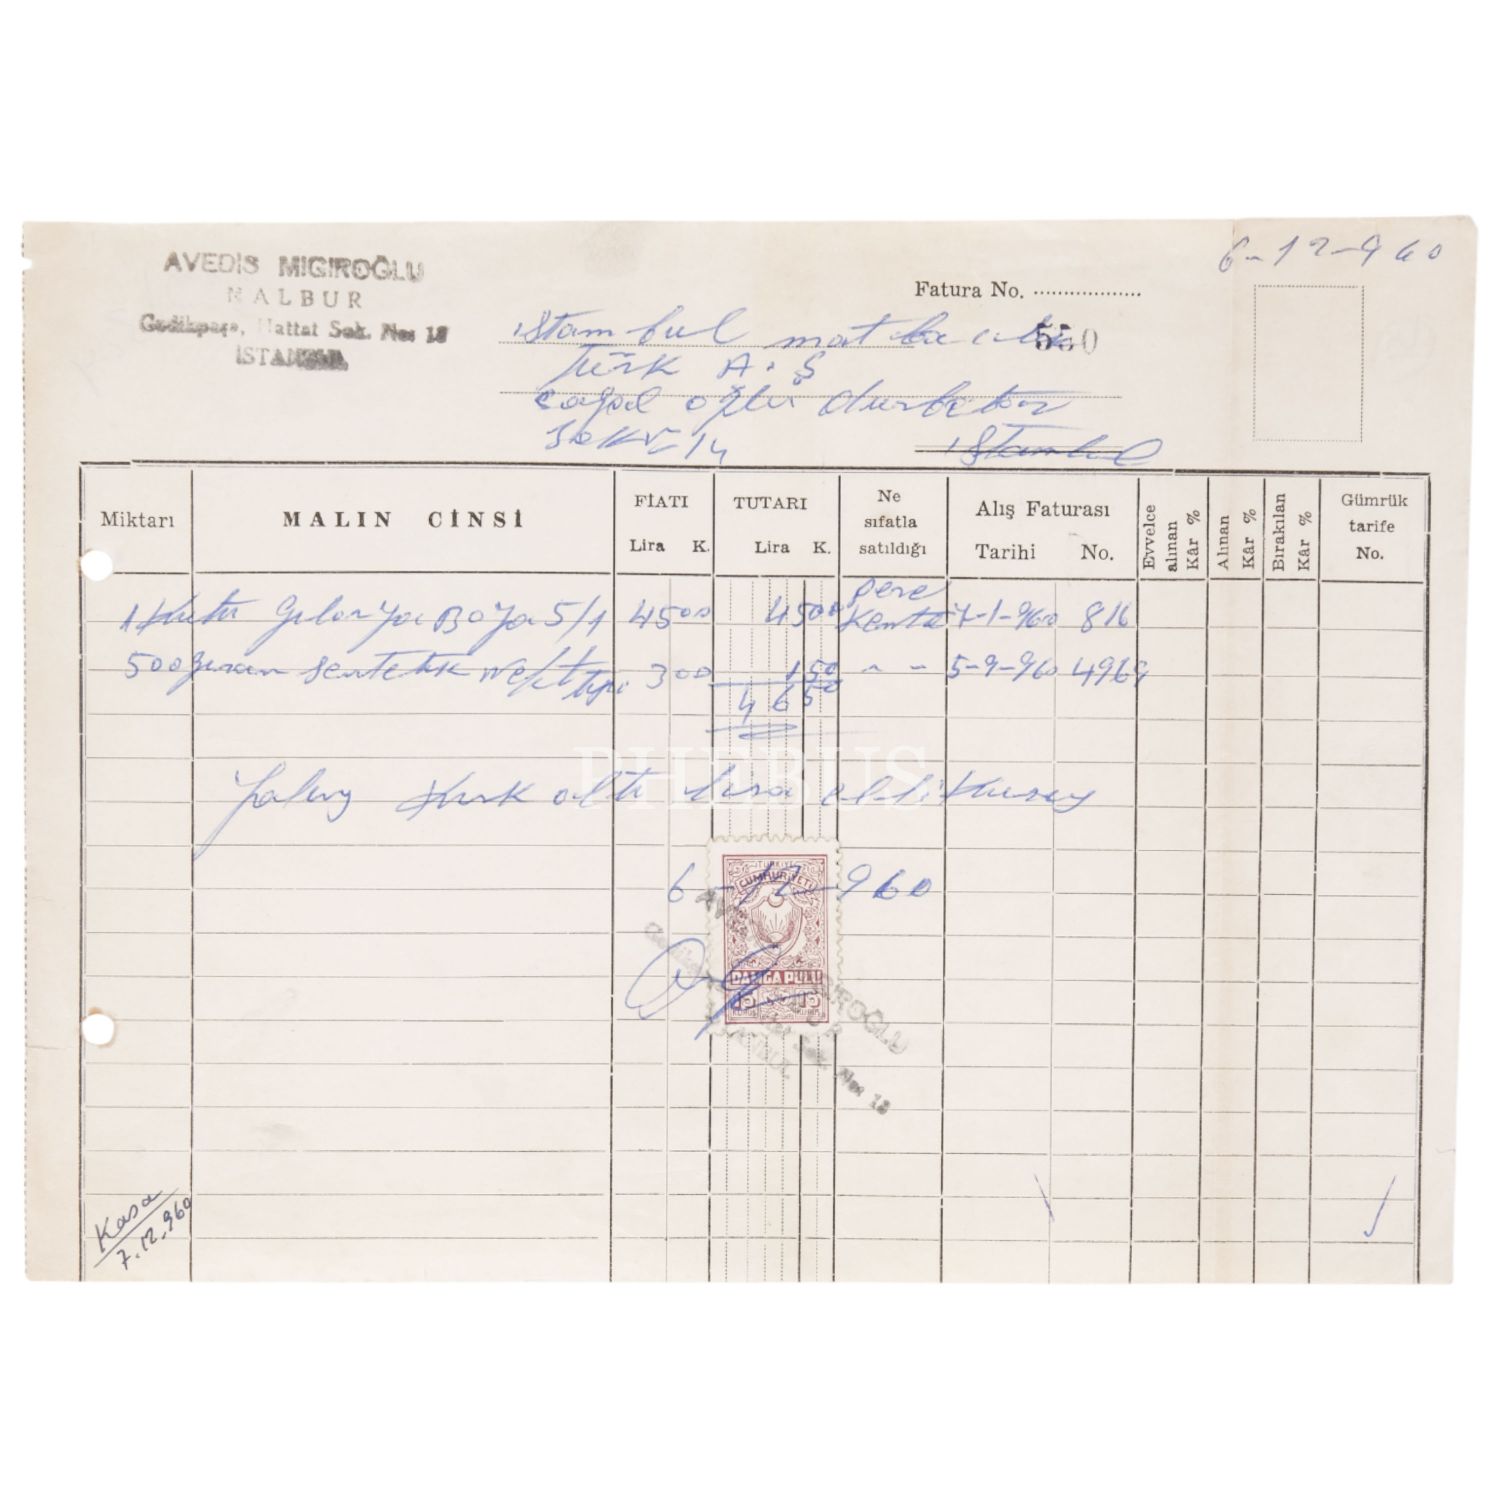 6-12-960
AVEDİS MIGIROĞLU
NALBUR
Gedikpaşa, Hattat Sok. No: 18
İSTANBUL
Fatura No. ..................
550
istambul matbacılık
Türk A.Ş
cağal oğlu
istambul
Miktarı
MALIN CİNSİ
FİATI
Lira K.
TUTARI
Lira K.
Ne sıfatla satıldığı
Alış Faturası
Tarihi No.
Evvelce alınan Kâr %
Alınan Kâr %
Bırakılan Kâr %
Gümrük tarife No.
1 Kutu Boya 5/1 4500 4500 pere kente 7-1-960 816
500 gram sentetik neft 300 150 " " 5-9-960 4969
4650
Yalnız kırk altı lira elli kuruş
6-12-960
TÜRKİYE
CUMHURİYETİ
DAMGA PULU
15 15
KURUŞ KURUŞ
MIGIROĞLU
Sok. No: 18
İSTANBUL
PHEBUS
Kasa
7.12.960